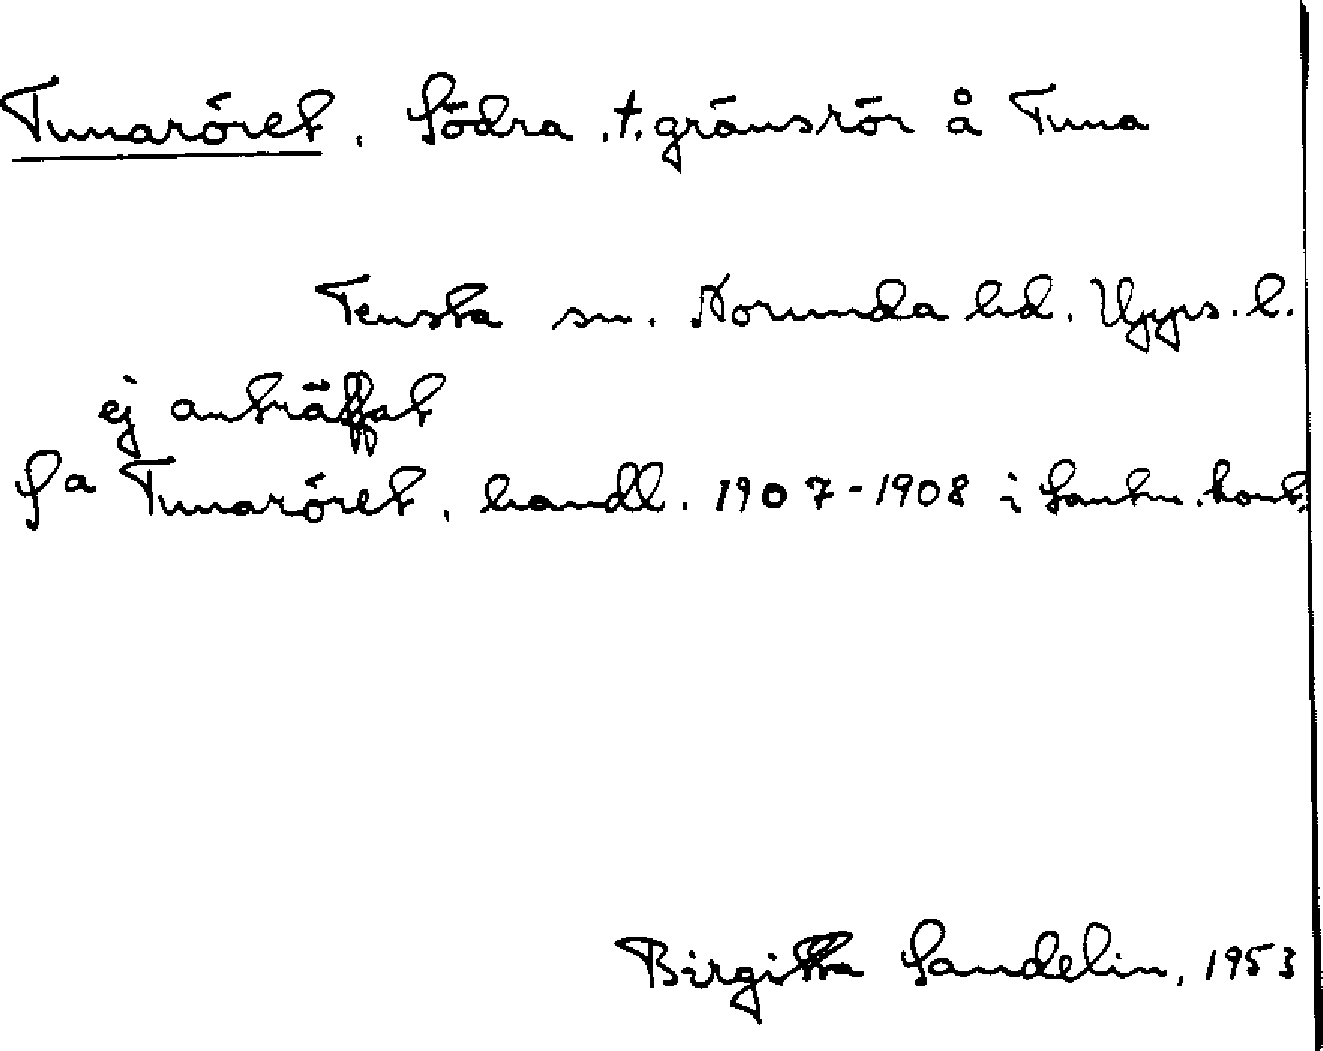 Tunaröret, Södra, t. gränsrör å Tuna
Tensta sn. Norunda hd. Upps. l.
ej anträffat
Sa Tunaröret, handl. 1907-1908 i Lantm. kont.
Birgitta Sandelin, 1953